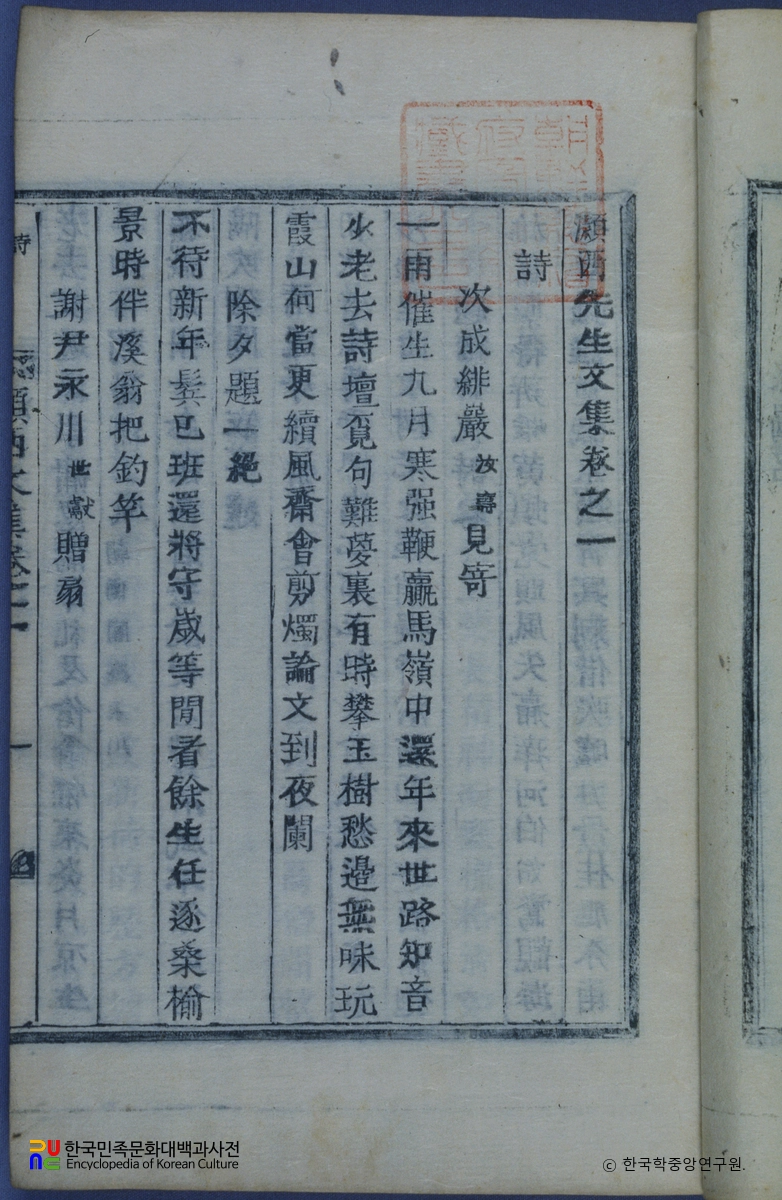 瀕西先生文集卷之一
詩
次成緋巖汝嘉見寄
一雨催生九月寒强鞭羸馬嶺中還年來世路知音
少老去詩壇覓句難夢裏有時攀玉樹愁邊無味玩
霞山何當更續風齋會剪燭論文到夜闌
除夕題一絶
不待新年鬂已班還將守歲等閒看餘生任逐桑榆
景時伴溪翁把釣竿
謝尹永川世獻贈扇
詩
西文集卷之一
一
한국민족문화대백과사전
Encyclopedia of Korean Culture
ⓒ 한국학중앙연구원.